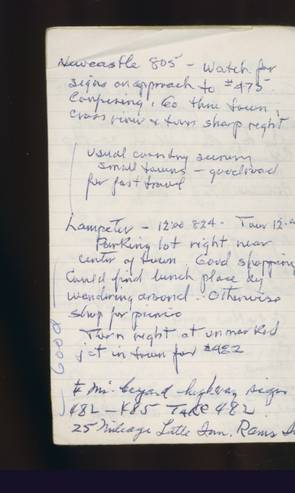 Newcastle 805 - Watch for
signs on approach to #475
Confusing! Go thru town,
cross river & turn sharp right
usual country scenery
small towns - good road
for fast travel
Lampeter - 12:00 824 - Tour 12:
Parking lot right near
center of town Good shopping
Could find lunch place by
wandering around. Otherwise
shop for picnic
Turn right at unmarked
jct in town for #482
good
mi beyond highway sign
482 - 485 TAKE 482
25 Mileage Little Inn. Rams